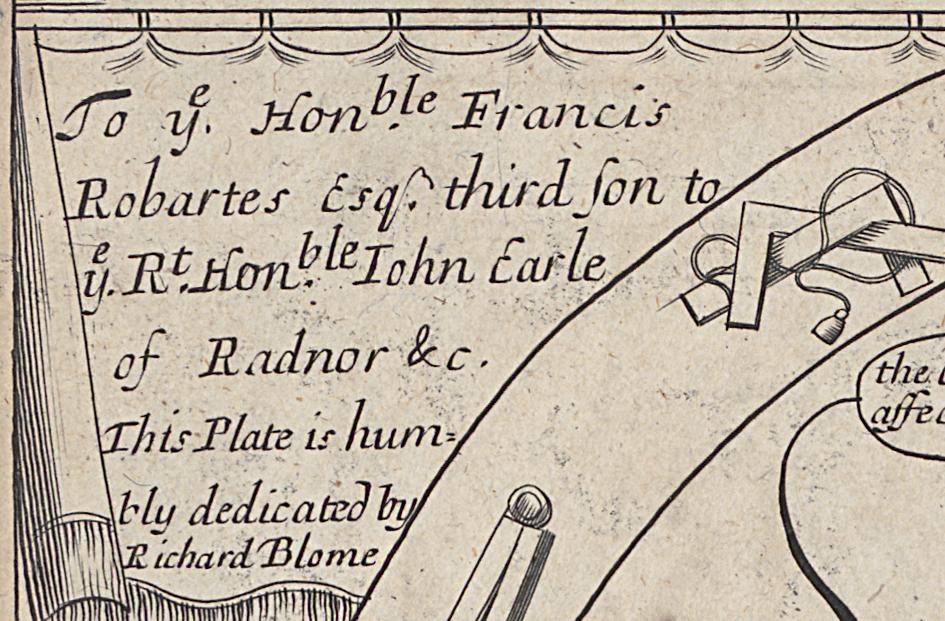 To yᵉ. Honᵇˡᵉ. Francis
Robartes Esqʳ. third ſon to
yᵉ. Rᵗ. Honᵇˡᵉ. Iohn Earle
of Radnor &c.
This Plate is hum=
bly dedicated by
Richard Blome
the